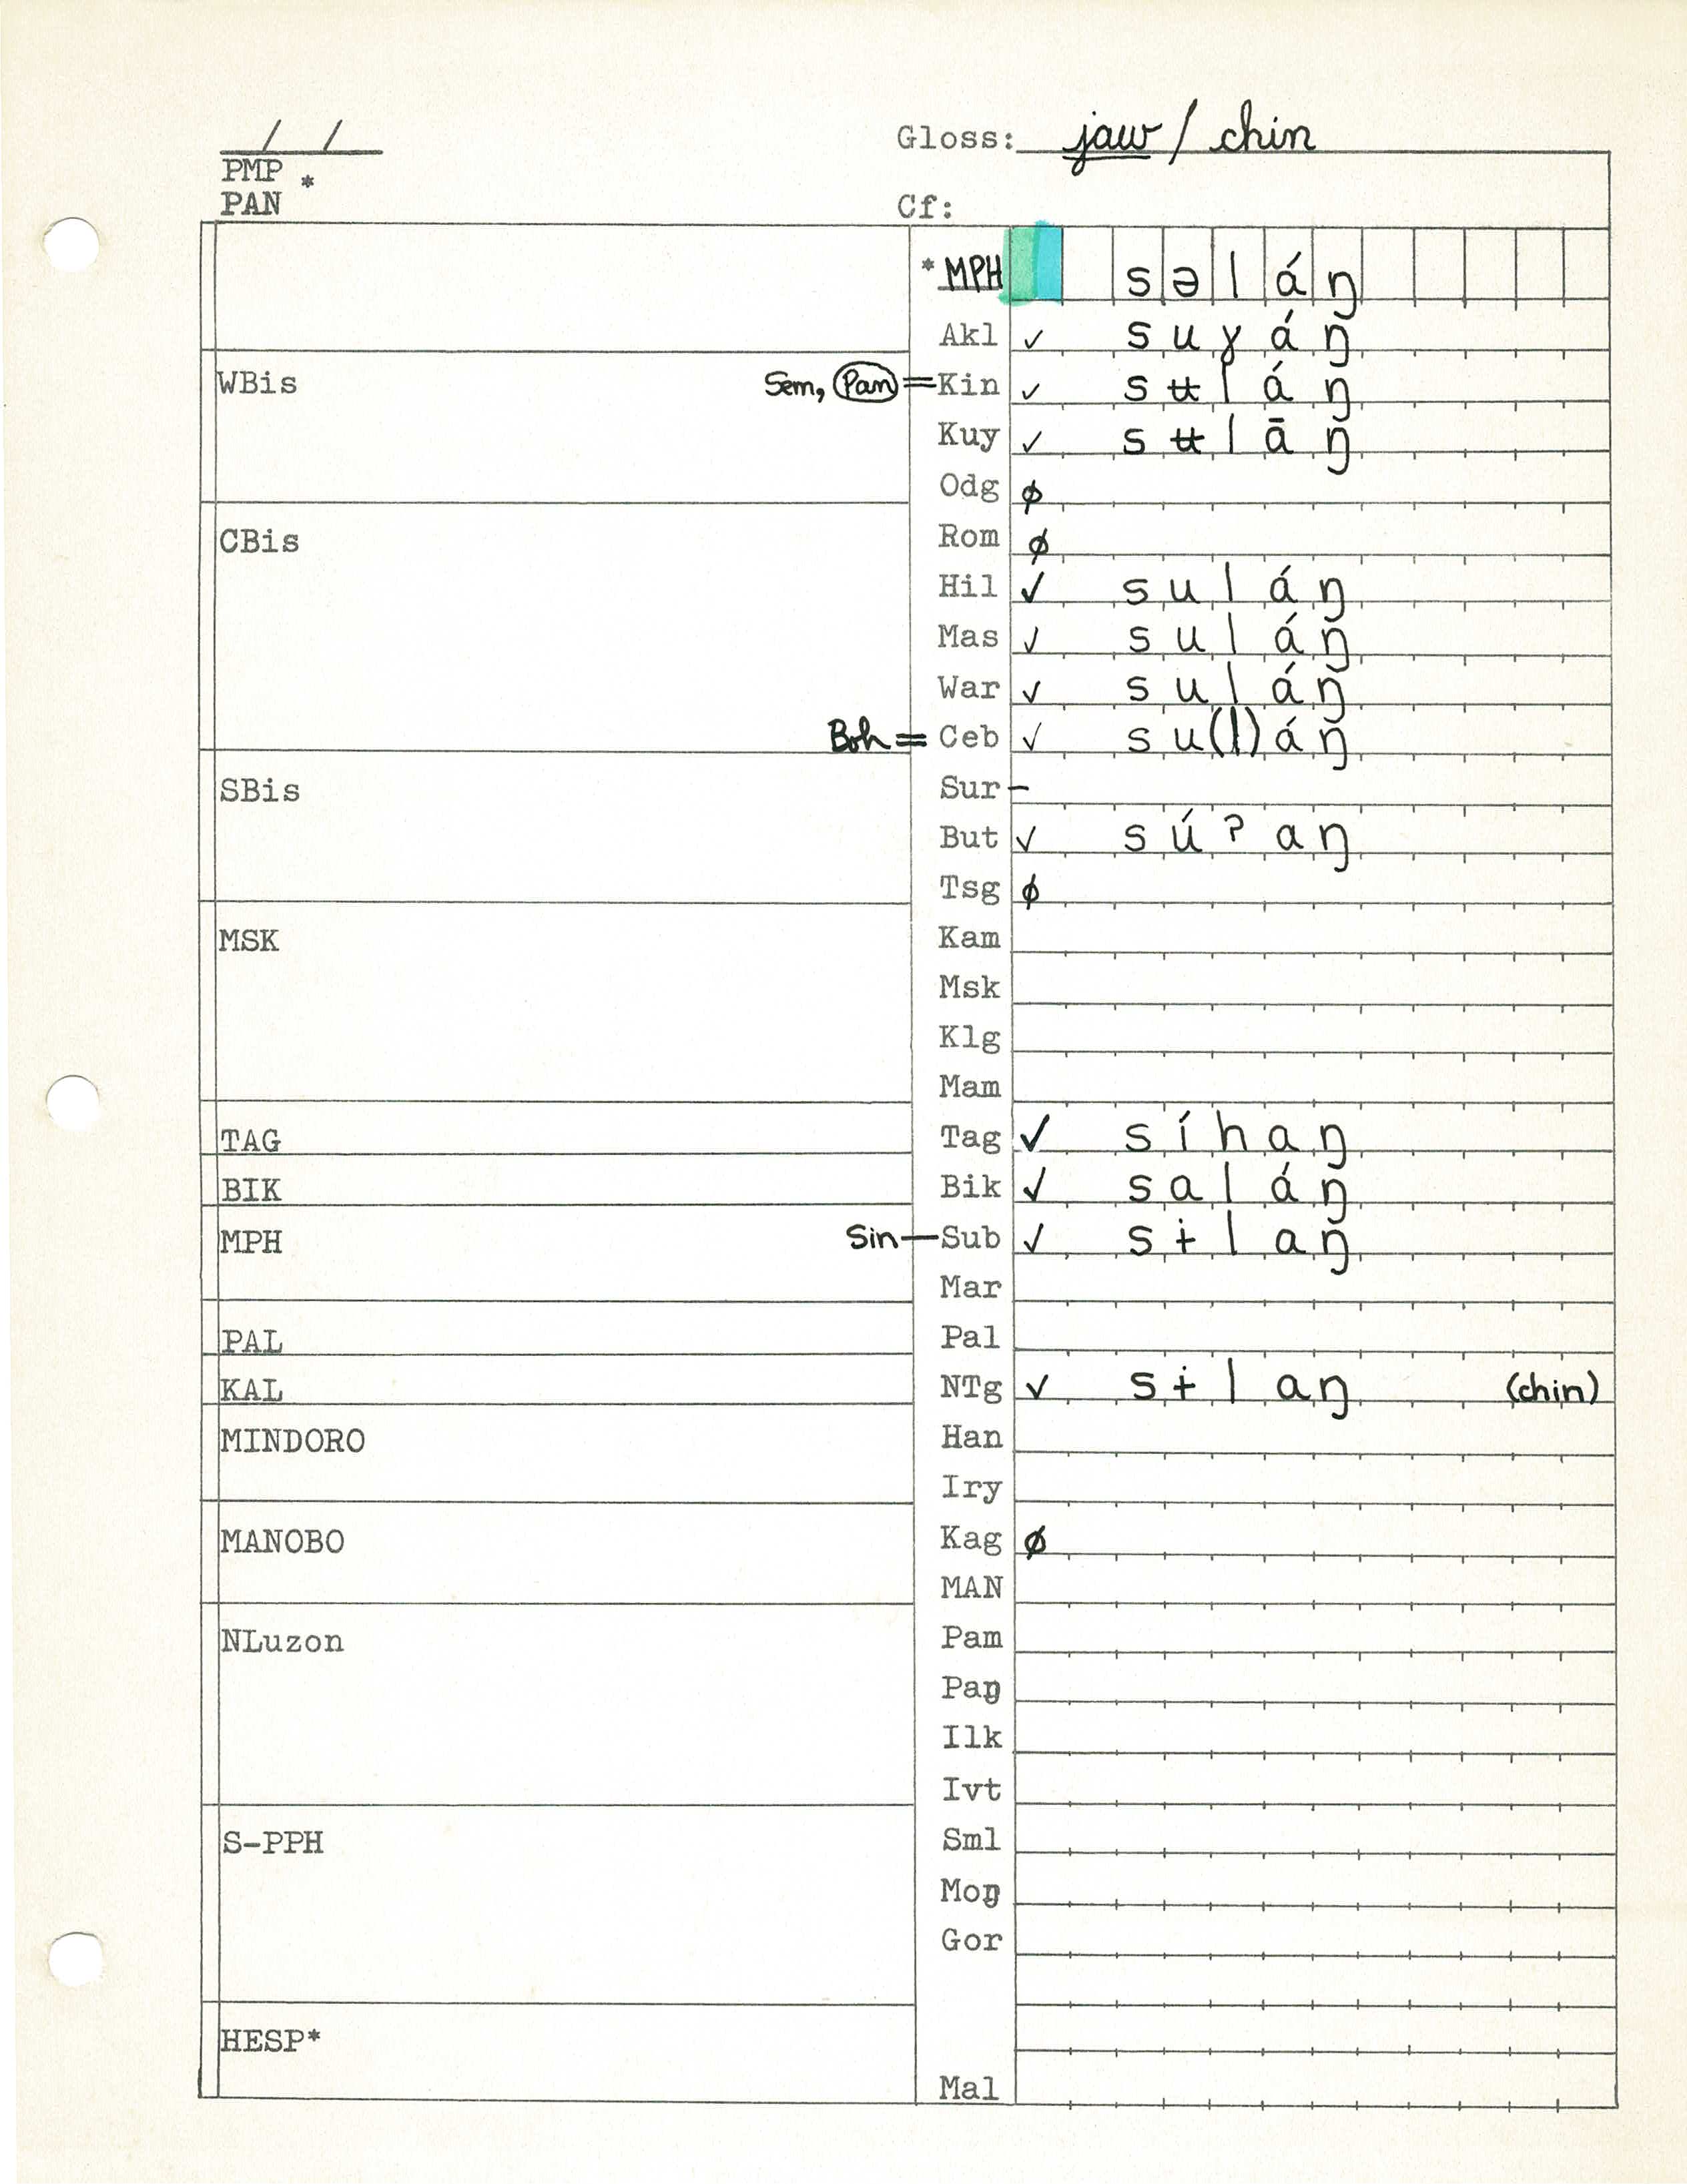 / /
Gloss: jaw / chin
PMP *
PAN
Cf:
* MPH səláŋ
Akl ✓ suɣáŋ
WBis Sem, Pan = Kin ✓ sʉláŋ
Kuy ✓ sʉlāŋ
Odg ∅
Rom ∅
CBis
Hil ✓ suláŋ
Mas ✓ suláŋ
War ✓ suláŋ
Boh = Ceb ✓ su(l)áŋ
SBis Sur –
But ✓ súʔaŋ
Tsg ∅
MSK Kam
Msk
Klg
Mam
TAG Tag ✓ síhaŋ
BIK Bik ✓ saláŋ
MPH Sin — Sub ✓ sɨlaŋ
Mar
PAL Pal
KAL NTg ✓ sɨlaŋ (chin)
MINDORO Han
Iry
MANOBO Kag ∅
MAN
NLuzon Pam
Paŋ
Ilk
Ivt
S-PPH Sml
Moŋ
Gor
HESP*
Mal